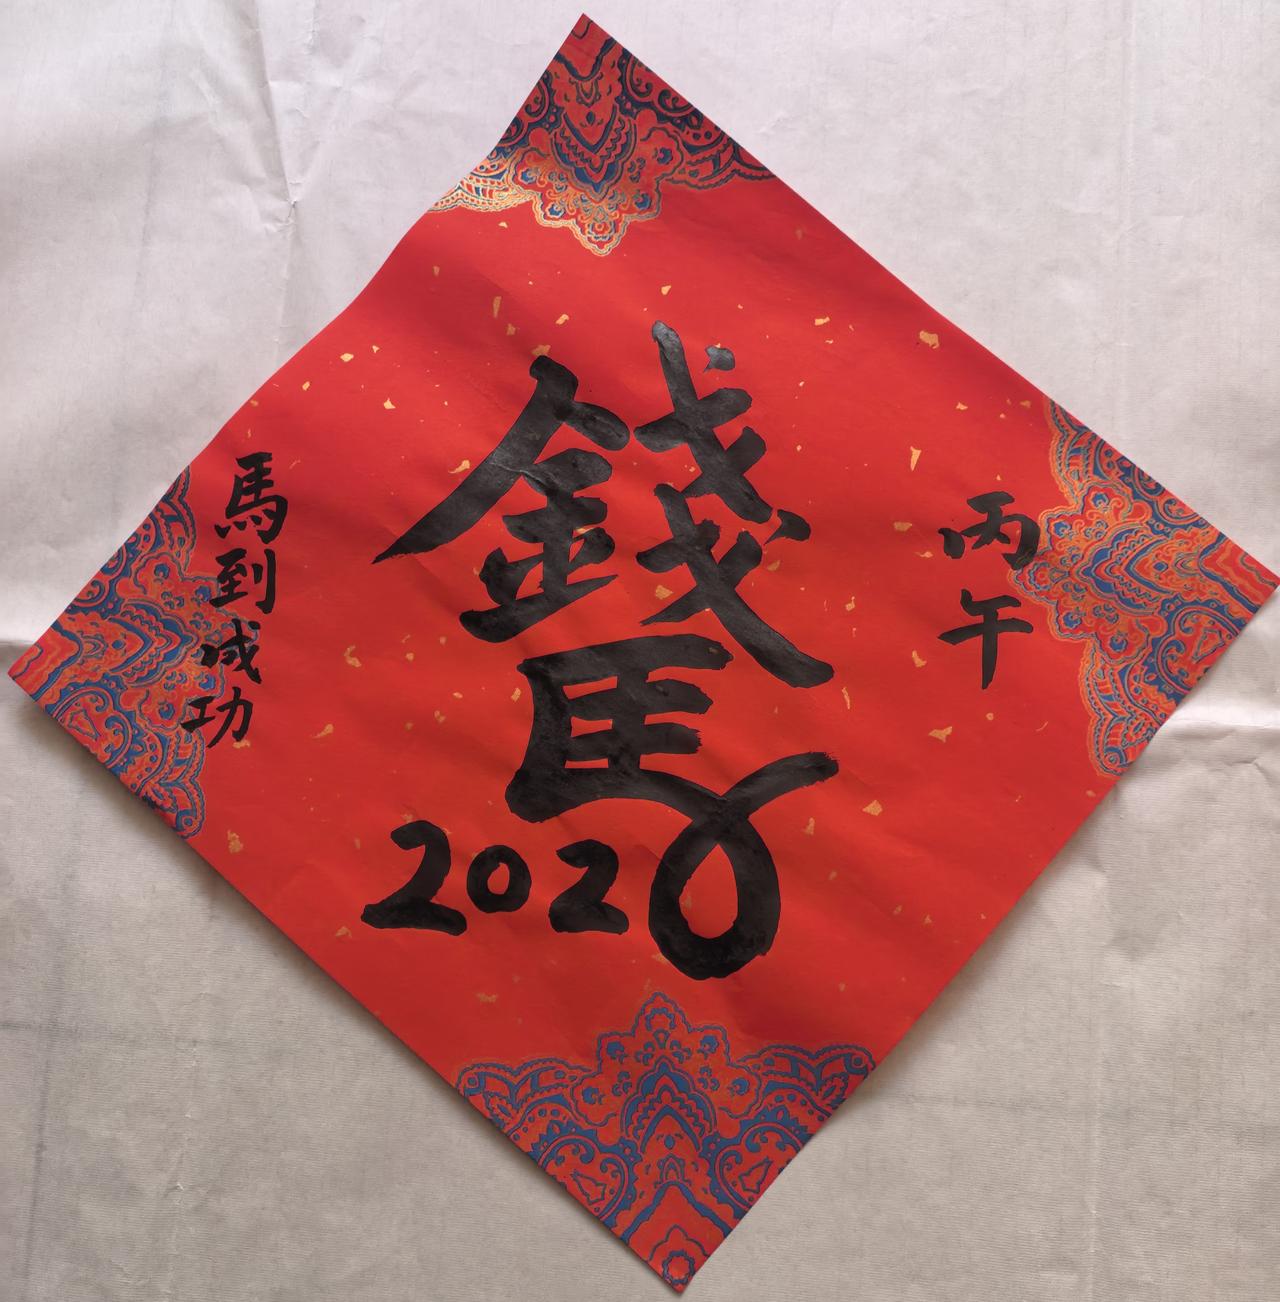 丙午
錢馬
2026
馬到成功